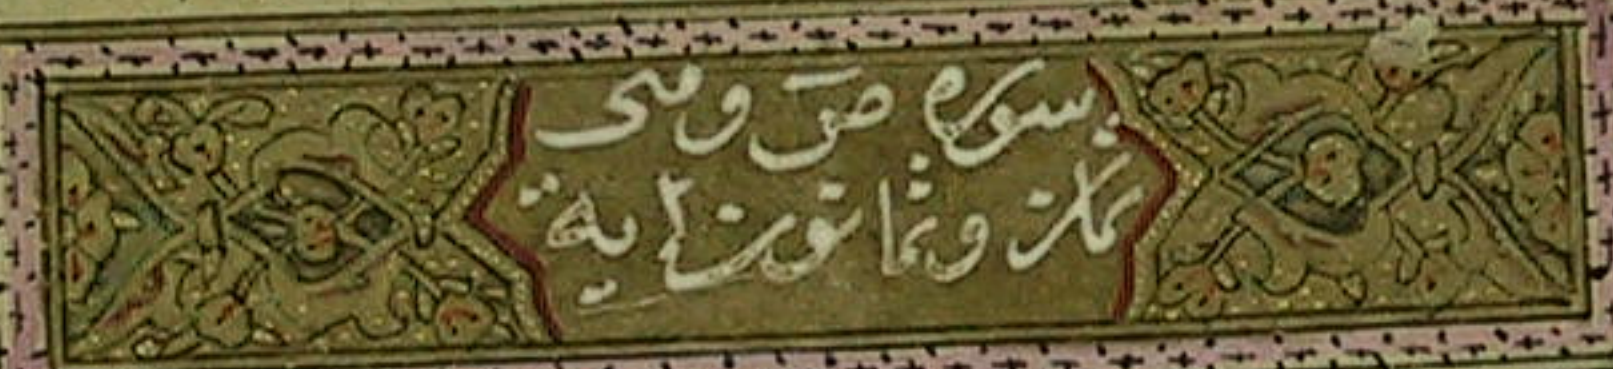 سوره ص وهى
ثمان وثمانون اية